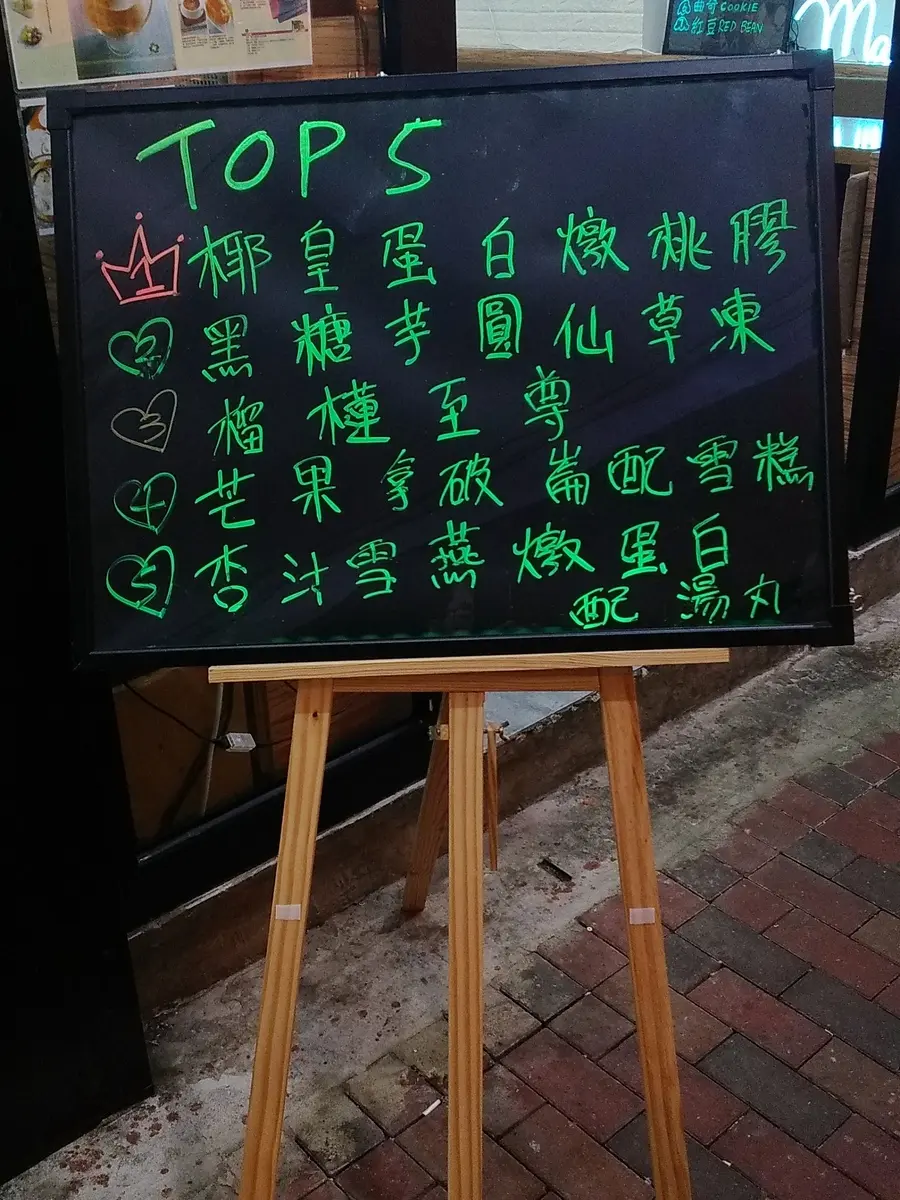 曲奇 COOKIE
紅豆 RED BEAN
TOP 5
1 椰皇蛋白燉桃膠
2 黑糖芋圓仙草凍
3 榴槤至尊
4 芒果拿破崙配雪糕
5 杏汁雪燕燉蛋白
配湯丸